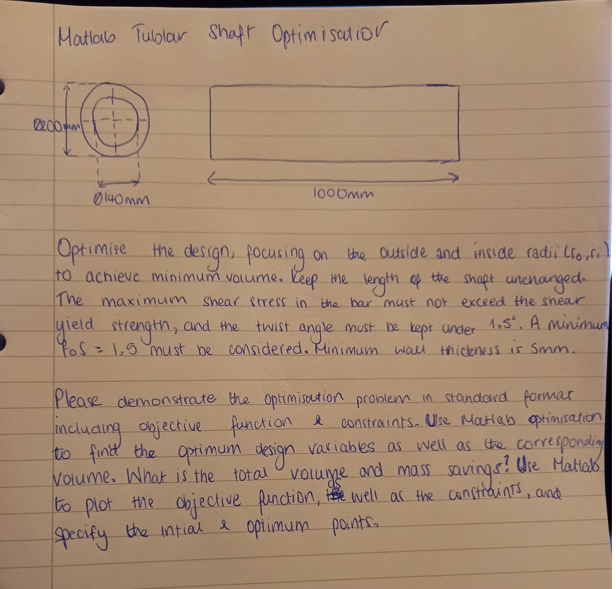 Matlab Tublar Shaft Optimisation
Ø200mm
Ø140mm
1000mm
Optimise the design, focusing on the outside and inside radii (ro, ri)
to achieve minimum volume. Keep the length of the shaft unchanged.
The maximum shear stress in the bar must not exceed the shear
yield strength, and the twist angle must be kept under 1.5°. A minimum
FoS = 1.5 must be considered. Minimum wall thickness is 5mm.
Please demonstrate the optimisation problem in standard format
including objective function & constraints. Use Matlab optimisation
to find the optimum design variables as well as the corresponding
volume. What is the total volume and mass savings? Use Matlab
to plot the objective function, well as the constraints, and
specify the intial & optimum points.